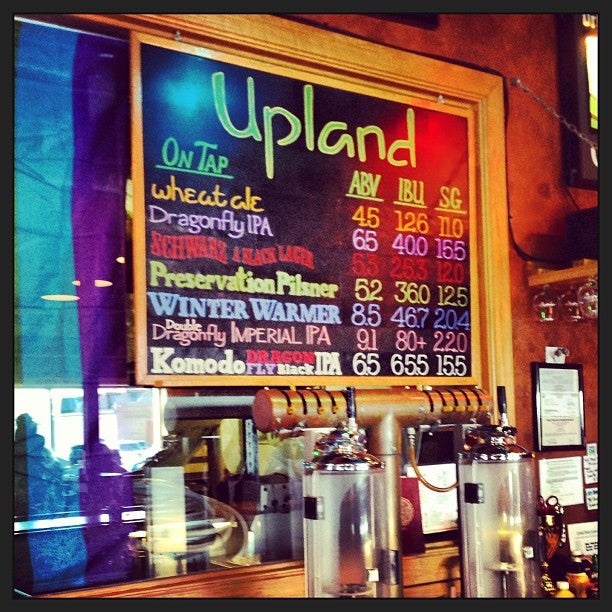 Upland
ON TAP ABV IBU SG
wheat ale 4.5 12.6 11.0
Dragonfly IPA 6.5 40.0 15.5
SCHWARZ A BLACK LAGER 5.3 25.3 12.0
Preservation Pilsner 5.2 36.0 12.5
WINTER WARMER 8.5 46.7 20.4
Double Dragonfly IMPERIAL IPA 9.1 80+ 22.0
Komodo DRAGON FLY Black IPA 6.5 65.5 15.5